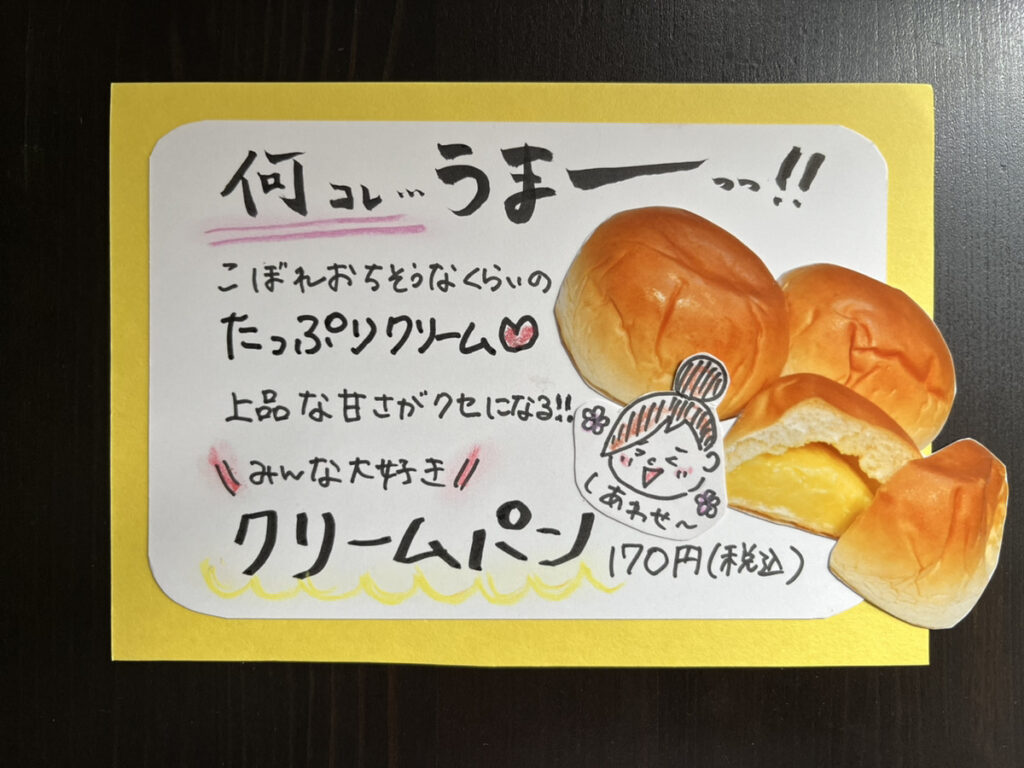 何コレ…うまーっっ!!
こぼれおちそうなくらいの
たっぷりクリーム♥
上品な甘さがクセになる!!
\\みんな大好き//
クリームパン
170円(税込)
しあわせ〜